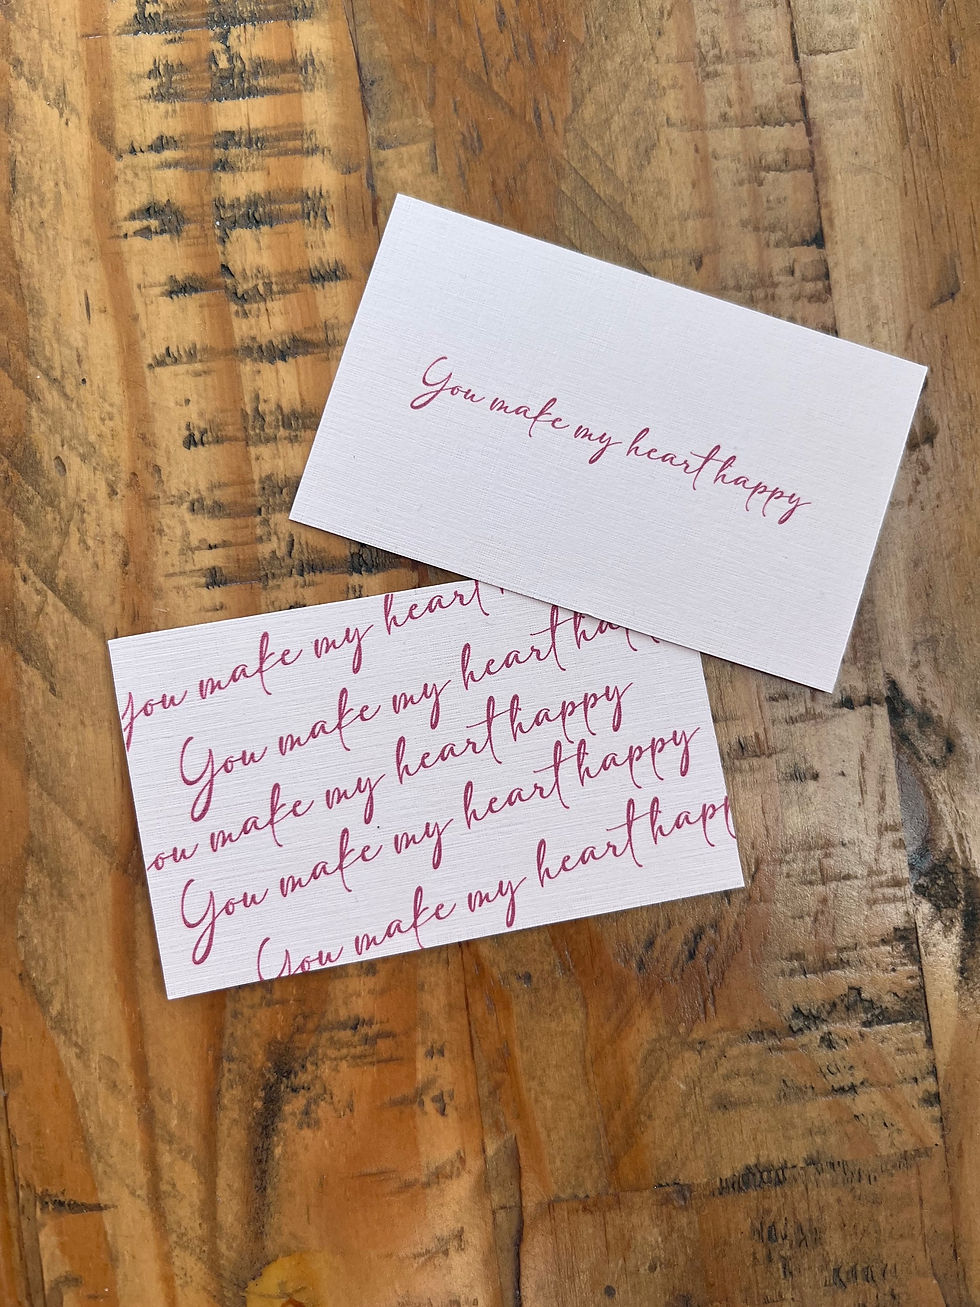 You make my heart happy
you make my heart
You make my heart hap
ou make my heart happy
You make my heart happy
You make my heart happ